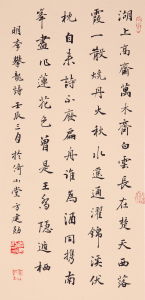 湖上高齋萬木齊白雲長在楚天西落
霞一散燒丹火秋水還通濯錦溪伏
枕自來詩亦廢扁舟誰爲酒同攜南
峯盡化蓮花色曾是王鳧隱遁栖
明李攀龍詩壬辰三月於倚山堂方建勛